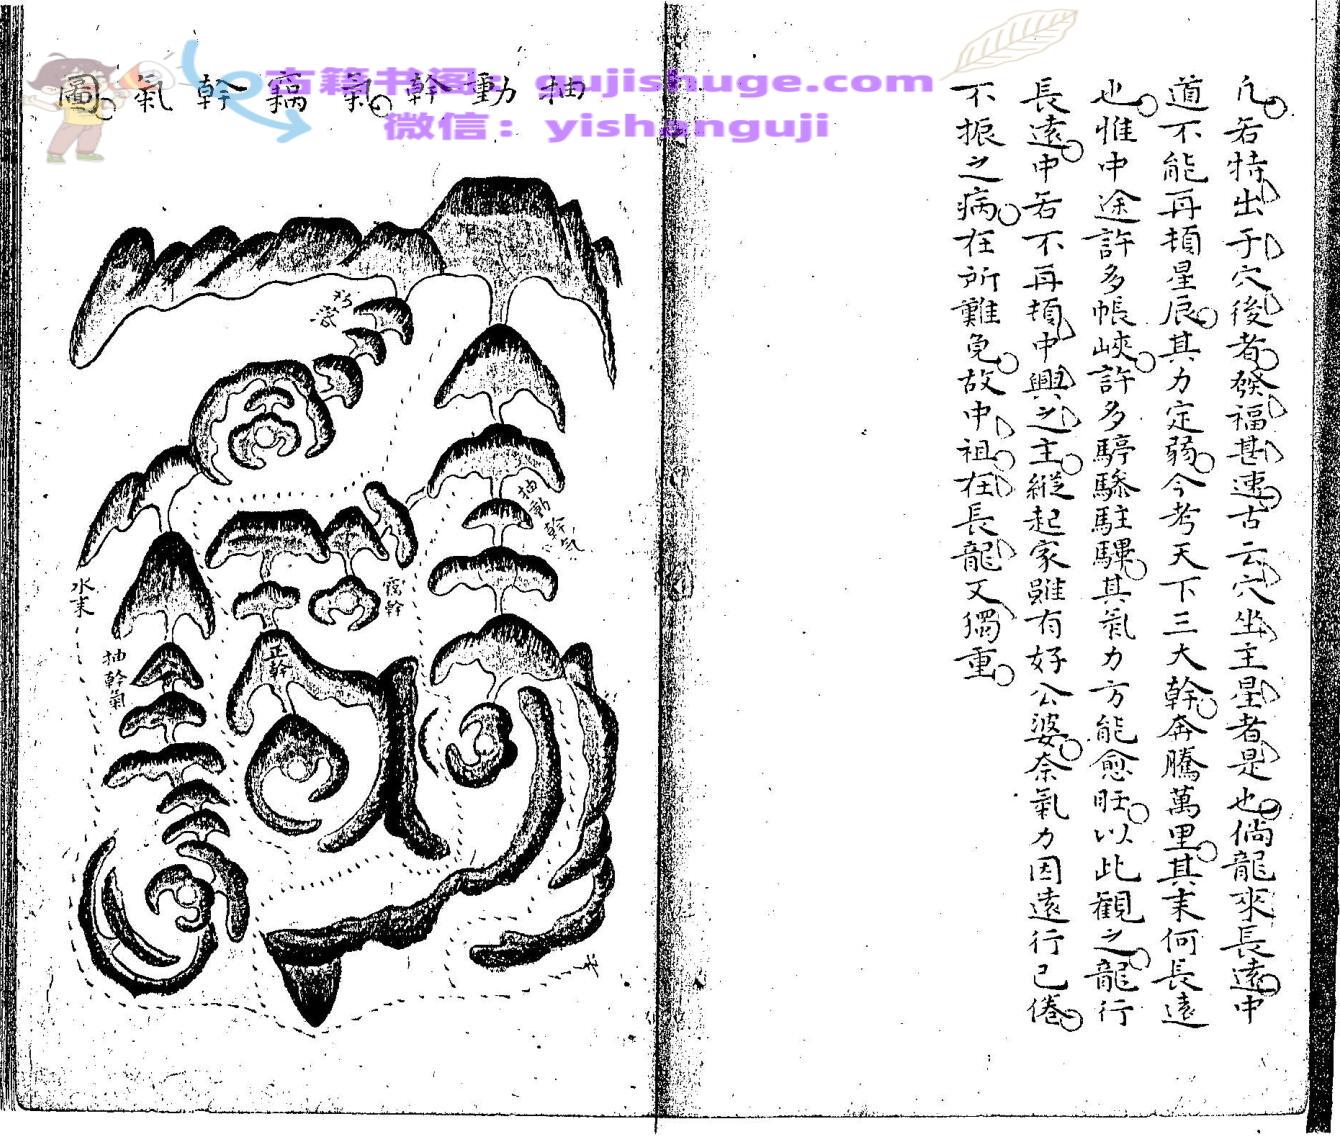 凢若特出于穴後者發福甚速古云穴坐主星者是也倘龍來長遠中
道不能再頓星辰其力定弱今考天下三大幹奔騰萬里其末何長遠
也惟中途許多帳峽許多驛驂駐驆其氣力方能愈旺以此觀之龍行
長遠中若不再頓中興之主縱起家雖有好公婆奈氣力因遠行已倦
不振之病在所難免故中祖在長龍又獨重
抽動幹氣竊幹氣圖
古籍书阁：gujishuge.com
微信：yishanguji
抽動幹氣
竊幹
正幹
水末
抽幹氣